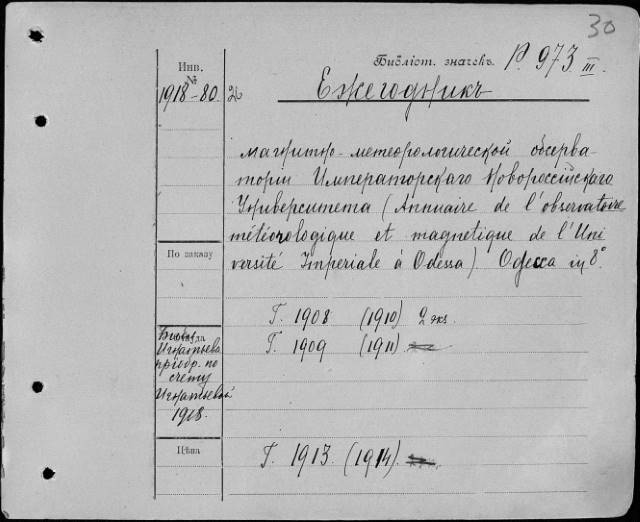 30
Инв.
№
1918-80.
Библіот. значекъ. Р. 973. III.
Ежегодникъ
магнитно-метеорологической обсерва-
торіи Императорскаго Новороссійскаго
Университета (Annuaire de l'observatoire
météorologique et magnetique de l'Uni
versité Imperiale à Odessa). Одесса in 8°.
По заказу
Г. 1908 (1910) 2 экз.
Г. 1909 (1911)
Игнатьева
приобр. по
счету
Игнатьевой
1918.
Цѣна
Г. 1913. (1914).